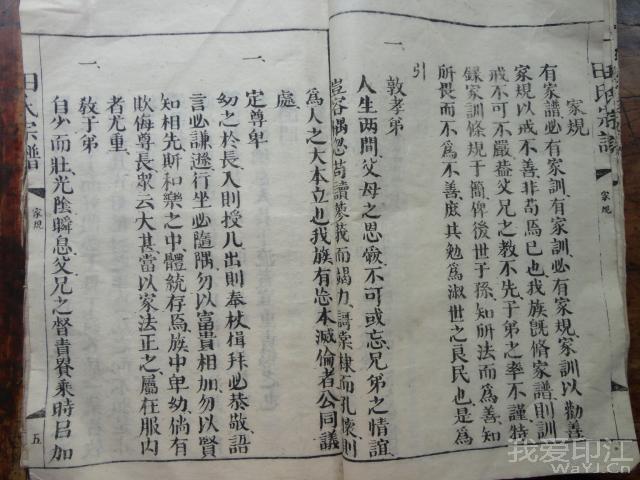 田氏宗譜
家規
家規
有家譜必有家訓有家訓必有家規家訓以勸善
家規以戒不善非苟焉已也我族旣脩家譜則訓
戒不可不嚴葢父兄之教不先子弟之率不謹特
錄家訓條規于簡俾後世子孫知所法而爲善知
所畏而不爲不善庶其勉爲淑世之良民也是爲
引
一
敦孝弟
人生两間父母之恩愛不可或忘兄弟之情誼
豈容偶忽苟讀蓼莪而竭力謌棠棣而孔懷則
爲人之大本立也我族有忘本滅倫者公同議
處
一
定尊卑
幼之於長入則授几出則奉杖揖拜必恭敬語
言必謙遜行坐必隨隅勿以富貴相加勿以賢
知相先斯和樂之中體統存焉族中卑幼倘有
欺侮尊長衆云大甚當以家法正之屬在服內
者尤重
一
教子弟
自少而壯光陰瞬息父兄之督責貴乘時苟加
田氏宗譜
家規
五
我爱印江
WaYJ.Cn